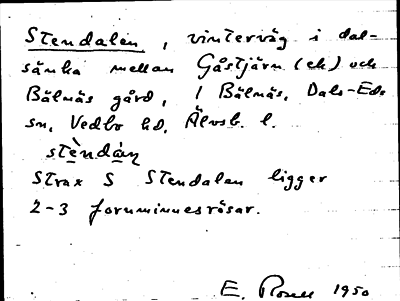 Stendalen, vinterväg i dal-
sänka mellan Gåstjärn (ek) och
Bälnäs gård, 1 Bälnäs, Dals-Eds
sn, Vedbo hd, Älvsb. l.
stèndáṇ
Strax S Stendalen ligger
2-3 fornminnesrösar.
E. 1950